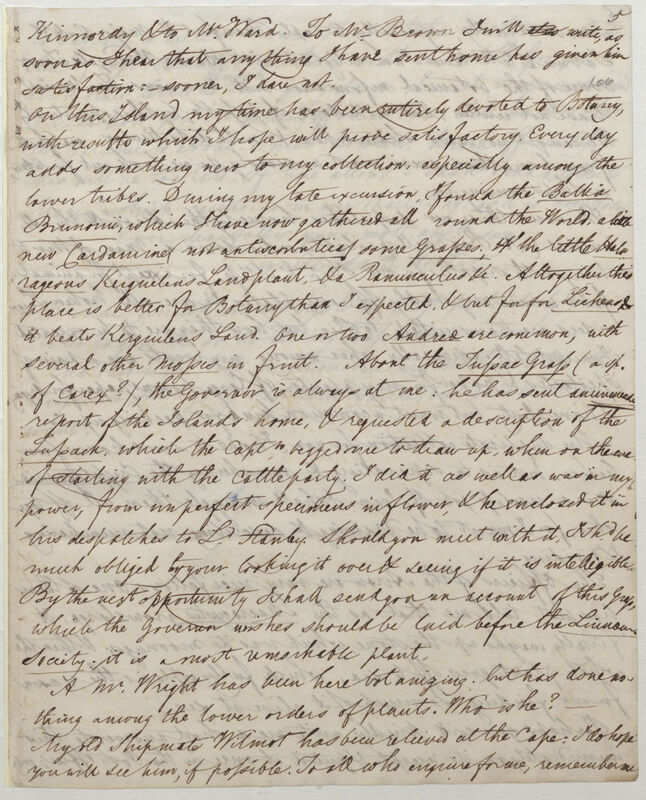 5
Kinnordy & to Mr. Ward. To Mr. Brown I will also write, as
soon as I hear that any thing I have sent home has given him
satisfaction: – sooner, I dare not.
106
On this Island my time has been entirely devoted to Botany,
with results which I hope will prove satisfactory. Every day
adds something new to my collection, especially among the
lower tribes. During my late excursion, I found the Ballia
Brunonii, which I have now gathered all round the World, a little
new Cardamine (not antiscorbutica) some Grasses, & the little Halo-
rageous Kerguelens Land plant, & a Ranunculus &c. Altogether this
place is better for Botany than I expected, & but for Lichens
it beats Kerguelens Land. One or two Andreæ are common, with
several other Mosses in fruit. About the Tussac Grass (a sp.
of Carex?), the Governor is always at me: he has sent
report of the Islands home, & requested a description of the
Tussack, which the Captn begged me to draw up, when on the eve
of starting with the Cattle party. I did it as well as was in my
power, from imperfect specimens in flower & he enclosed it in
his despatches to Ld Stanley. Should you meet with it, I shd be
much obliged by your looking it over & seeing if it is intelligible.
By the next opportunity I shall send you an account of this Grass,
which the Governor wishes should be laid before the Linnean
Society: it is a most remarkable plant.
A Mr. Wright has been here botanizing, but has done no-
thing among the lower orders of plants. Who is he? —
My old Shipmate Wilmot has been relieved at the Cape: I do hope
you will see him, if possible. To all who enquire for me, remember me